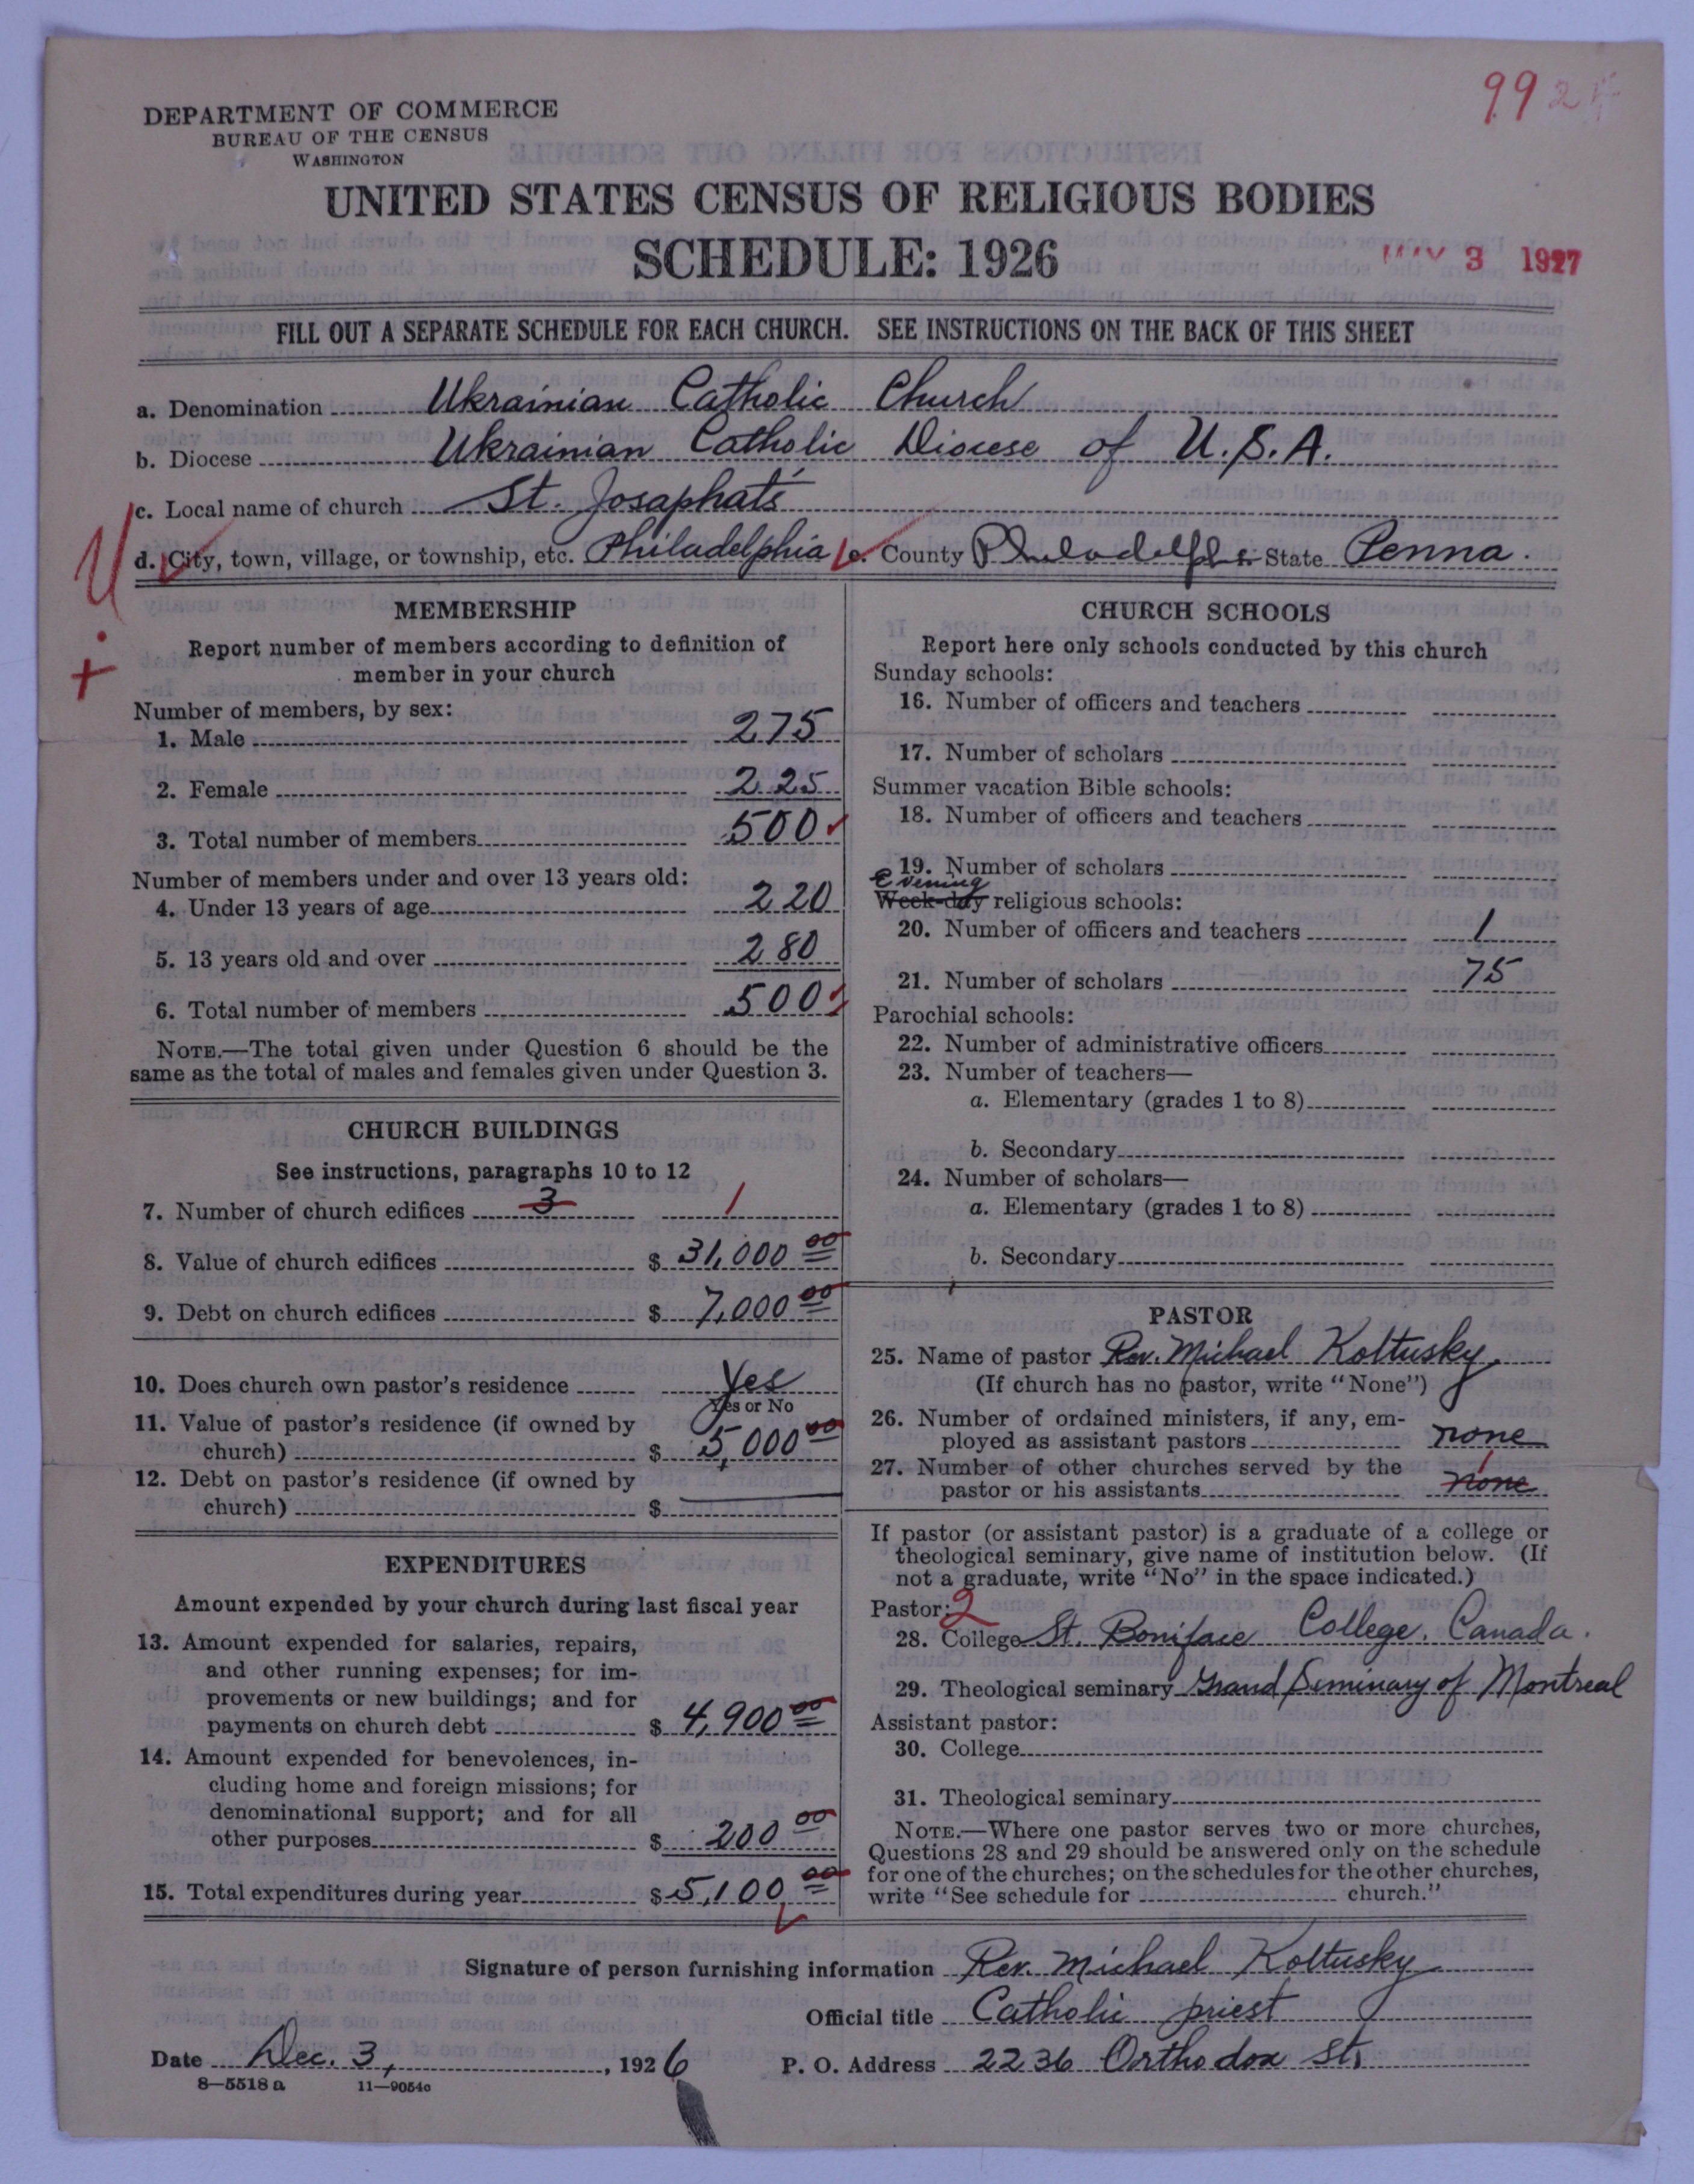 99 2
DEPARTMENT OF COMMERCE
BUREAU OF THE CENSUS
WASHINGTON
UNITED STATES CENSUS OF RELIGIOUS BODIES
SCHEDULE: 1926
MAY 3 1927
FILL OUT A SEPARATE SCHEDULE FOR EACH CHURCH. SEE INSTRUCTIONS ON THE BACK OF THIS SHEET
a. Denomination Ukrainian Catholic Church
b. Diocese Ukrainian Catholic Diocese of U.S.A.
c. Local name of church St. Josaphat's
d. City, town, village, or township, etc. Philadelphia e. County Philadelphia State Penna.
MEMBERSHIP
Report number of members according to definition of
member in your church
Number of members, by sex:
1. Male 275
2. Female 225
3. Total number of members 500
Number of members under and over 13 years old:
4. Under 13 years of age 220
5. 13 years old and over 280
6. Total number of members 500
NOTE.—The total given under Question 6 should be the
same as the total of males and females given under Question 3.
CHURCH BUILDINGS
See instructions, paragraphs 10 to 12
7. Number of church edifices 3 1
8. Value of church edifices $ 31,000 00
9. Debt on church edifices $ 7,000 00
10. Does church own pastor's residence Yes
Yes or No
11. Value of pastor's residence (if owned by
church) $ 5,000 00
12. Debt on pastor's residence (if owned by
church) $
EXPENDITURES
Amount expended by your church during last fiscal year
13. Amount expended for salaries, repairs,
and other running expenses; for im-
provements or new buildings; and for
payments on church debt $ 4,900 00
14. Amount expended for benevolences, in-
cluding home and foreign missions; for
denominational support; and for all
other purposes $ 200 00
15. Total expenditures during year $ 5,100 00
CHURCH SCHOOLS
Report here only schools conducted by this church
Sunday schools:
16. Number of officers and teachers
17. Number of scholars
Summer vacation Bible schools:
18. Number of officers and teachers
19. Number of scholars
Evening
Week-day religious schools:
20. Number of officers and teachers 1
21. Number of scholars 75
Parochial schools:
22. Number of administrative officers
23. Number of teachers—
a. Elementary (grades 1 to 8)
b. Secondary
24. Number of scholars—
a. Elementary (grades 1 to 8)
b. Secondary
PASTOR
25. Name of pastor Rev. Michael Koltusky
(If church has no pastor, write "None")
26. Number of ordained ministers, if any, em-
ployed as assistant pastors none
27. Number of other churches served by the 1
pastor or his assistants none
If pastor (or assistant pastor) is a graduate of a college or
theological seminary, give name of institution below. (If
not a graduate, write "No" in the space indicated.)
Pastor: 2
28. College St. Boniface College, Canada.
29. Theological seminary Grand Seminary of Montreal
Assistant pastor:
30. College
31. Theological seminary
NOTE.—Where one pastor serves two or more churches,
Questions 28 and 29 should be answered only on the schedule
for one of the churches; on the schedules for the other churches,
write "See schedule for church."
Signature of person furnishing information Rev. Michael Koltusky
Official title Catholic priest
Date Dec. 3, 1926 P. O. Address 2236 Orthodox St.
8—5518 a 11—9054c